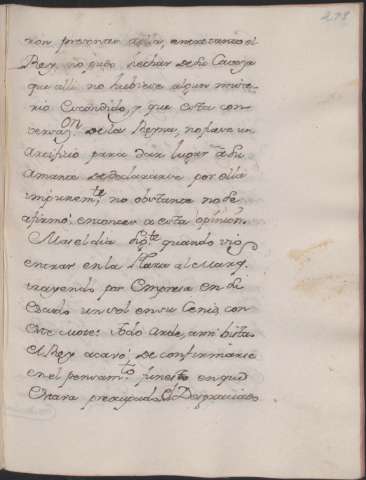 278
ron presentes a ella, entretanto el
Rey no pudo hechar de su Caveza
que alli no hubiese algun miste-
rio Escondido, y que esta con
versaz.on de la Reyna, no fuese un
Artificio para dar lugar a su
Amante de declararse por ella
impunem.te no obstante no se
afirmó entonces a esta opinion.
Mas el dia sig.te quando vio
entrar en la Plaza al Marq.
trayendo por Empresa en su
Escudo un sol en su Cenit, con
este mote: Todo Arde, a mi bista
el Rey acavó de confirmarse
en el pensam.to funesto en que
Estava preocupado. El Desgraciado